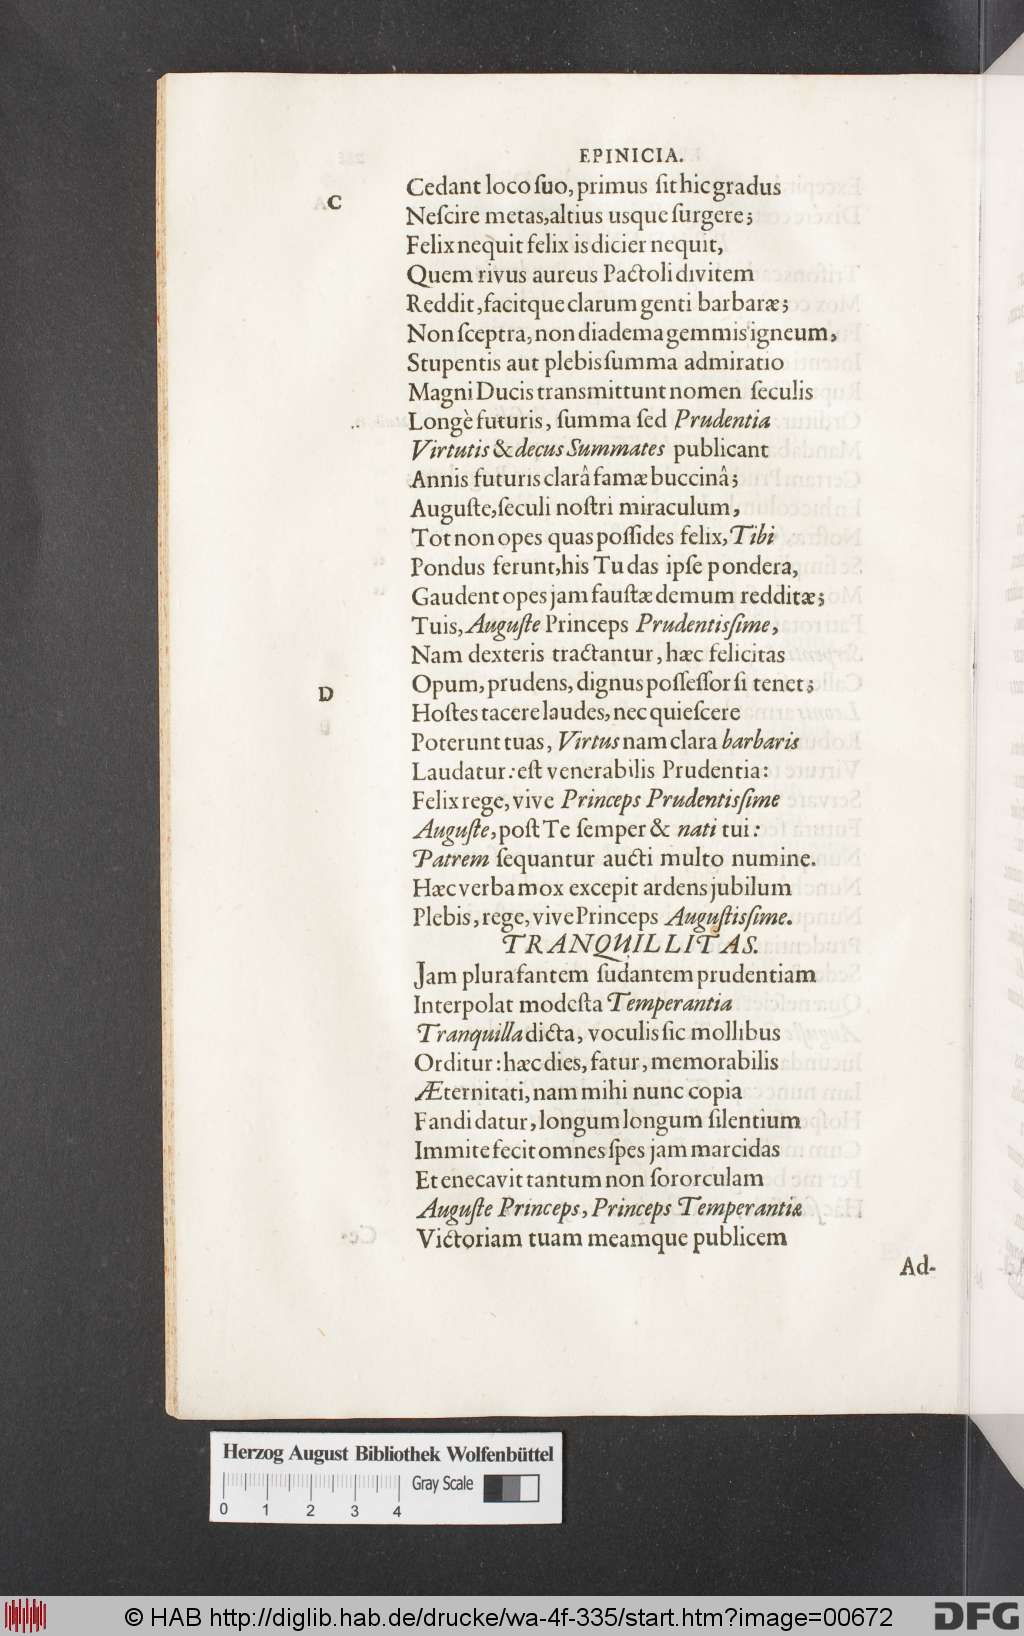 EPINICIA.
C
Cedant loco ſuo, primus ſit hic gradus
Neſcire metas, altius usque ſurgere;
Felix nequit felix is dicier nequit,
Quem rivus aureus Pactoli divitem
Reddit, facitque clarum genti barbaræ;
Non ſceptra, non diadema gemmis igneum,
Stupentis aut plebis ſumma admiratio
Magni Ducis transmittunt nomen ſeculis
Longè futuris, ſumma ſed Prudentia
Virtutis & decus Summates publicant
Annis futuris clarâ famæ buccinâ;
Auguſte, ſeculi noſtri miraculum,
Tot non opes quas poſſides felix, Tibi
Pondus ferunt, his Tu das ipſe pondera,
Gaudent opes jam fauſtæ demum redditæ;
Tuis, Auguſte Princeps Prudentisſime,
Nam dexteris tractantur, hæc felicitas
D
Opum, prudens, dignus poſſeſſor ſi tenet;
Hoſtes tacere laudes, nec quieſcere
Poterunt tuas, Virtus nam clara barbaris
Laudatur: eſt venerabilis Prudentia:
Felix rege, vive Princeps Prudentisſime
Auguſte, poſt Te ſemper & nati tui:
Patrem ſequantur aucti multo numine.
Hæc verba mox excepit ardens jubilum
Plebis, rege, vive Princeps Auguſtisſime.
TRANQUILLITAS.
Jam plura fantem ſudantem prudentiam
Interpolat modeſta Temperantia
Tranquilla dicta, voculis ſic mollibus
Orditur: hæc dies, fatur, memorabilis
Æternitati, nam mihi nunc copia
Fandi datur, longum longum ſilentium
Immite fecit omnes ſpes jam marcidas
Et enecavit tantum non ſororculam
Auguſte Princeps, Princeps Temperantiæ
Victoriam tuam meamque publicem
Ad-
Herzog August Bibliothek Wolfenbüttel
Gray Scale
0 1 2 3 4
© HAB http://diglib.hab.de/drucke/wa-4f-335/start.htm?image=00672
DFG